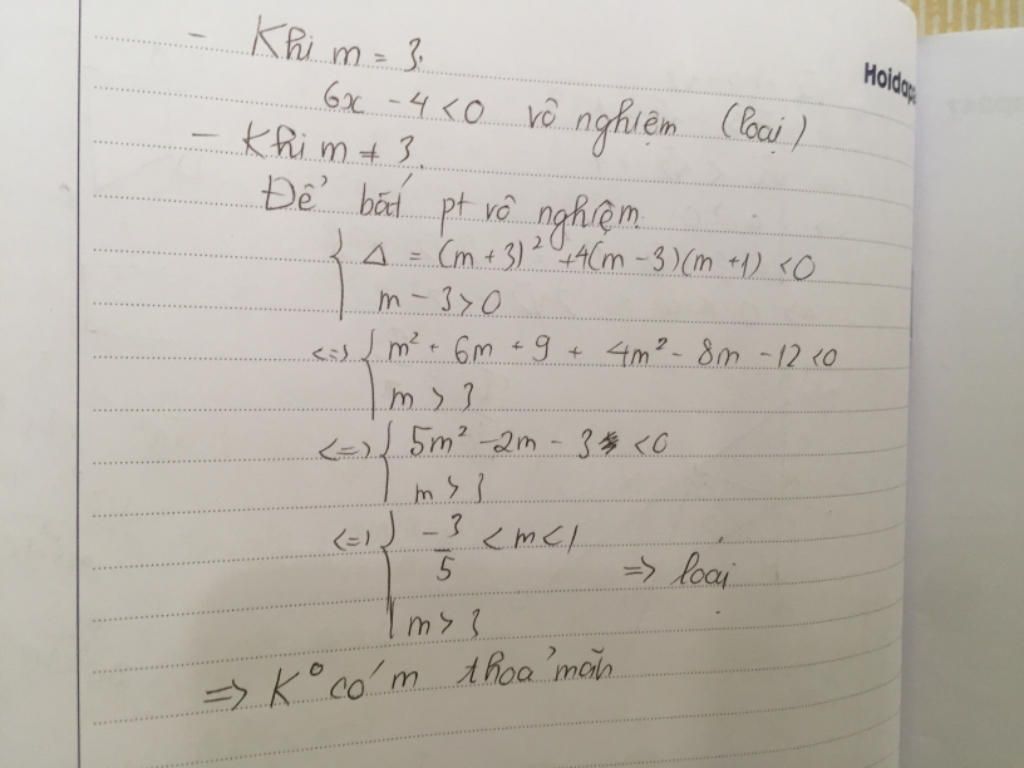 - Khi m = 3.
Hoidap
6x - 4 < 0 vô nghiệm (loại)
- Khi m ≠ 3.
Để bất pt vô nghiệm.
{ Δ = (m + 3)² + 4(m - 3)(m + 1) < 0
m - 3 > 0
<=> { m² + 6m + 9 + 4m² - 8m - 12 < 0
m > 3
<=> { 5m² - 2m - 3 < 0
m > 3
<=> { -3/5 < m < 1 => loại
m > 3
=> K° có m thoả mãn